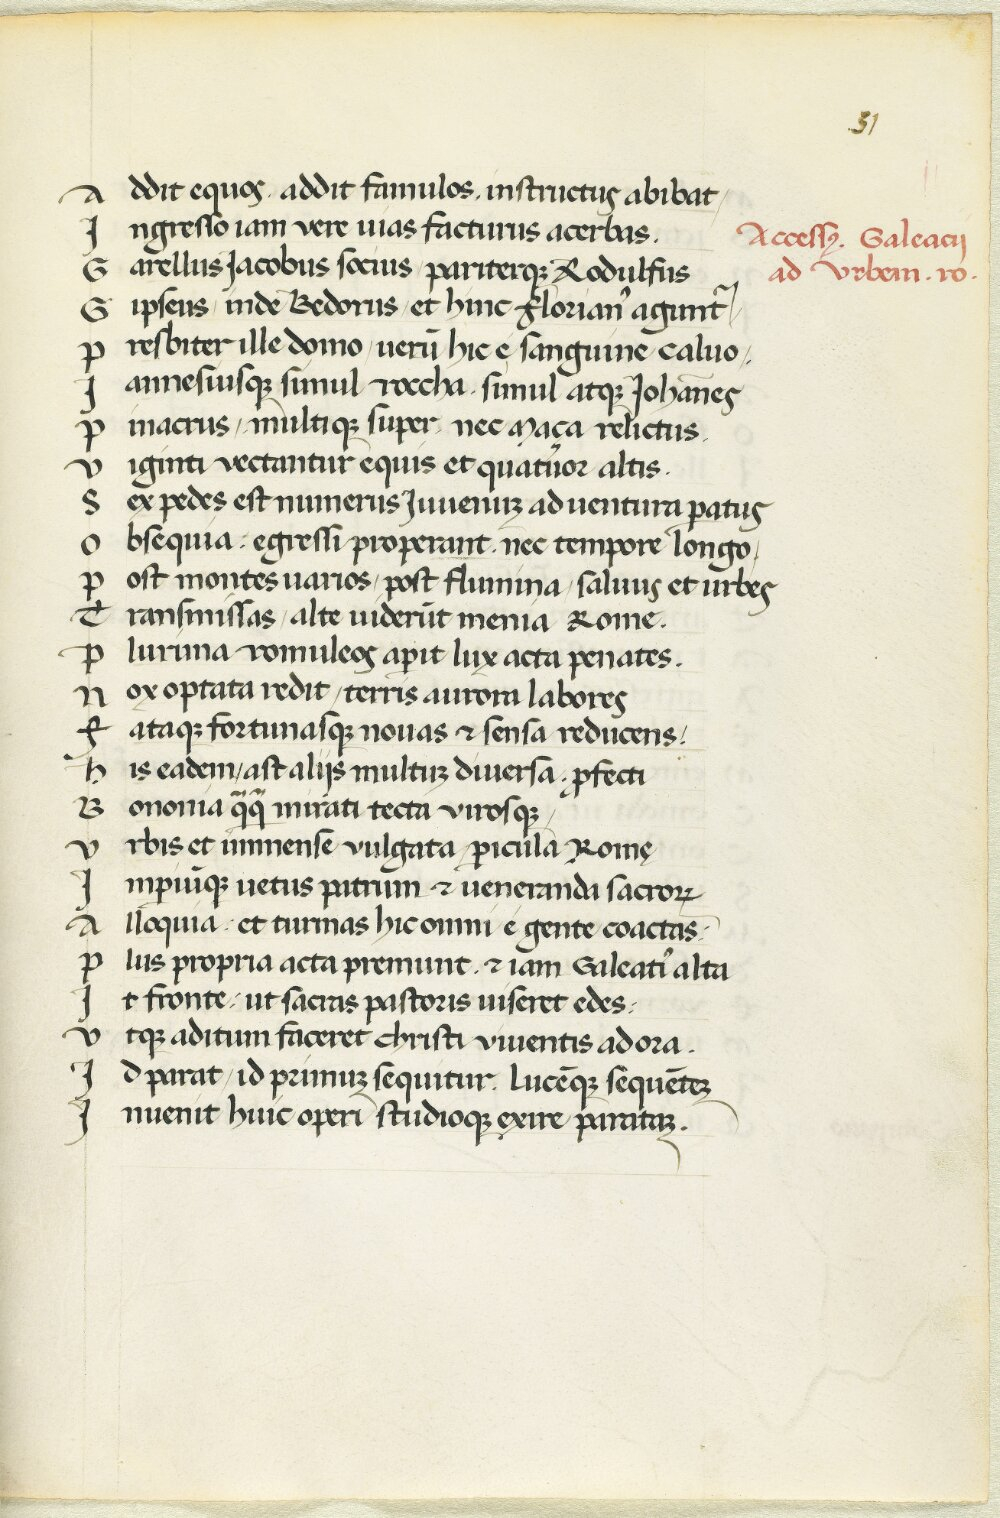 31
Addit equos. addit famulos. instructus abibat /
Ingresso iam vere uias facturus acerbas.
Accessꝰ. Galeacij
ad Vrbem. ro.
Garellus Jacobus socius / pariterqꝫ Rodulfus
Gipseus / inde Bedorus / et hinc Florianꝰ agunt᷑ /
presbiter ille domo / uerū hic e sanguine caluo /.
Jannesiusqꝫ simul roccha. simul atqꝫ Johānes
pinacrus / multiqꝫ super. nec maça relictus.
viginti vectantur equis et quatuor altis.
Sex pedes est numerus Juuenuꝫ ad uentura ꝑatus
obsequia: egressi properant. nec tempore longo /
post montes uarios / post flumina / saluus et urbes
Transmissas / alte uiderūt menia Rome.
plurima romuleos aꝑit lux acta penates.
nox optata redit / terris aurora labores
fataqꝫ fortunasqꝫ nouas ⁊ sensa reducens /.
his eadem / ast alijs multuꝫ diuersa. ꝓfecti
Bononia q̄q̄ mirati tecta virosqꝫ /
vrbis et inmense vulgata ꝑicula Romę
Jmpiūqꝫ uetus patrum ⁊ ueneranda sacroꝝ
Alloquia: et turmas hic omni e gente coactas:
plus propria acta premunt. ⁊ iam Galeatiꝰ alta
It fronte: ut sacras pastoris uiseret edes:
vtqꝫ aditum faceret christi viuentis ad ora.
Id parat / id primuꝫ sequitur. lucēqꝫ sequēteꝫ
Inuenit huic operi studioqꝫ exire parataꝫ.